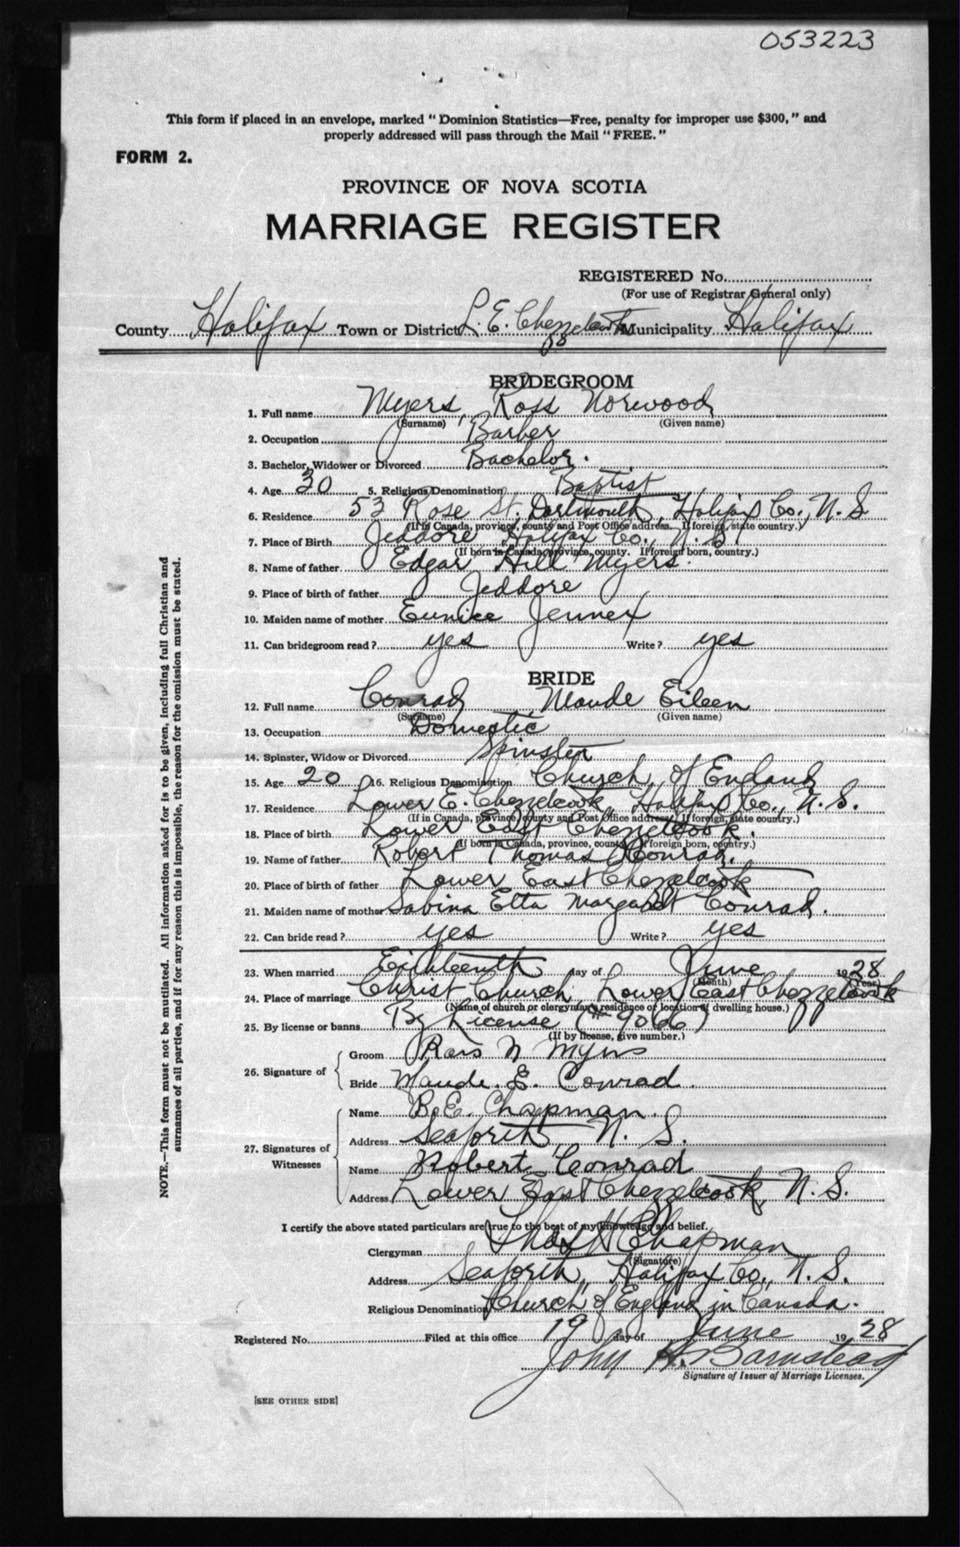 053223
This form if placed in an envelope, marked "Dominion Statistics—Free, penalty for improper use $300," and
properly addressed will pass through the Mail "FREE."
FORM 2.
PROVINCE OF NOVA SCOTIA
MARRIAGE REGISTER
REGISTERED No.
(For use of Registrar General only)
County Halifax Town or District L. E. Chezzetcook Municipality Halifax
BRIDEGROOM
1. Full name Myers, Ross Norwood
(Surname) (Given name)
2. Occupation Barber
3. Bachelor, Widower or Divorced Bachelor.
4. Age 30 5. Religious Denomination Baptist
6. Residence 53 Rose St. Dartmouth, Halifax Co., N. S
(If in Canada, province, county and Post Office address. If foreign, state country.)
7. Place of Birth Jeddore Halifax Co., N. S.
(If born in Canada, province, county. If foreign born, country.)
8. Name of father Edgar Hill Myers.
9. Place of birth of father Jeddore
10. Maiden name of mother Eunice Jennex
11. Can bridegroom read? yes Write? yes
BRIDE
12. Full name Conrad, Maude Eileen
(Surname) (Given name)
13. Occupation Domestic
14. Spinster, Widow or Divorced Spinster
15. Age 20 16. Religious Denomination Church of England
17. Residence Lower E. Chezzetcook Halifax Co., N. S.
(If in Canada, province, county and Post Office address. If foreign, state country.)
18. Place of birth Lower East Chezzetcook.
(If born in Canada, province, county. If foreign born, country.)
19. Name of father Robert Thomas Conrad.
20. Place of birth of father Lower East Chezzetcook
21. Maiden name of mother Sabina Etta Margaret Conrad.
22. Can bride read? yes Write? yes
23. When married Eighteenth day of June 1928
(Month) (Year)
24. Place of marriage Christ Church, Lower East Chezzetcook
(Name of church or clergyman's residence or location of dwelling house.)
25. By license or banns By License (# 9066)
(If by license, give number.)
26. Signature of
Groom Ross N Myers
Bride Maude. E. Conrad.
27. Signatures of Witnesses
Name B. E. Chapman.
Address Seaforth N. S.
Name Robert Conrad
Address Lower East Chezzetcook, N. S.
I certify the above stated particulars are true to the best of my knowledge and belief.
Clergyman Thos H Chapman
(Signature)
Address Seaforth, Halifax Co., N. S.
Religious Denomination Church of England in Canada.
Registered No. Filed at this office 19 day of June 1928
John A. Barnstead
Signature of Issuer of Marriage Licenses.
[SEE OTHER SIDE]
NOTE.—This form must not be mutilated. All information asked for is to be given, including full Christian and
surnames of all parties, and if for any reason this is impossible, the reason for the omission must be stated.